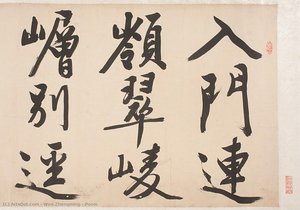 入門連
嶺翠崚
嶒別逕
(C) ArtsDot.com - Wen Zhengming - Poem